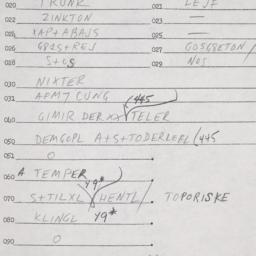 020 TRUNK 021 LEJF
022 ZINKTON 023 —
024 XAP+ABAJS 025 —
026 G82S+REJ 027 GOSGETON/
028 S+OS 029 NOS
030 NIXTER
031 AFMT CUNG (445
040 GIMIR DER XX TELER
050 DEMGOPL A+S+TODERLERL (445
051 O
060 A TEMPER
070 S+TILXL Y9* HENTL/ TOPORISKE
080 KLINGL Y9*
090 O